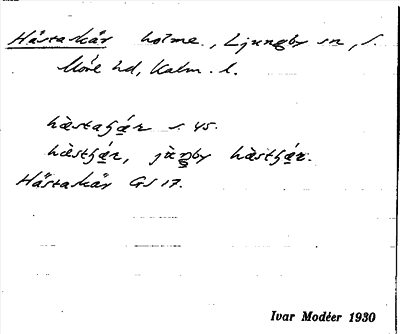 Hästaskär holme., Ljungby sn, S.
Möre hd, Kalm. l.
hästaʃär s. 45.
hästʃär, jùŋby hàstʃär.
Hästaskär GS 17.
Ivar Modéer 1930